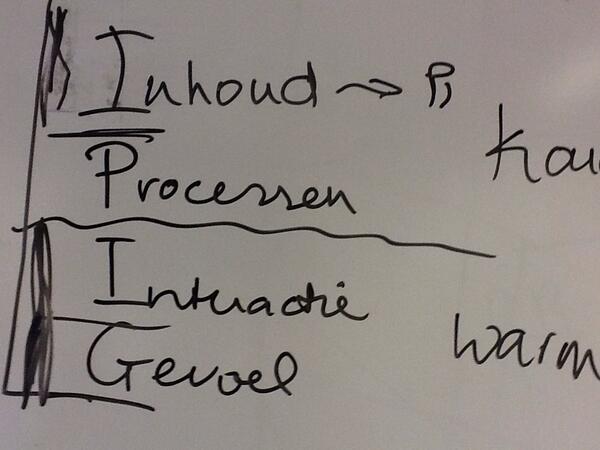 Inhoud →
Processen
Interactie
Gevoel
warm